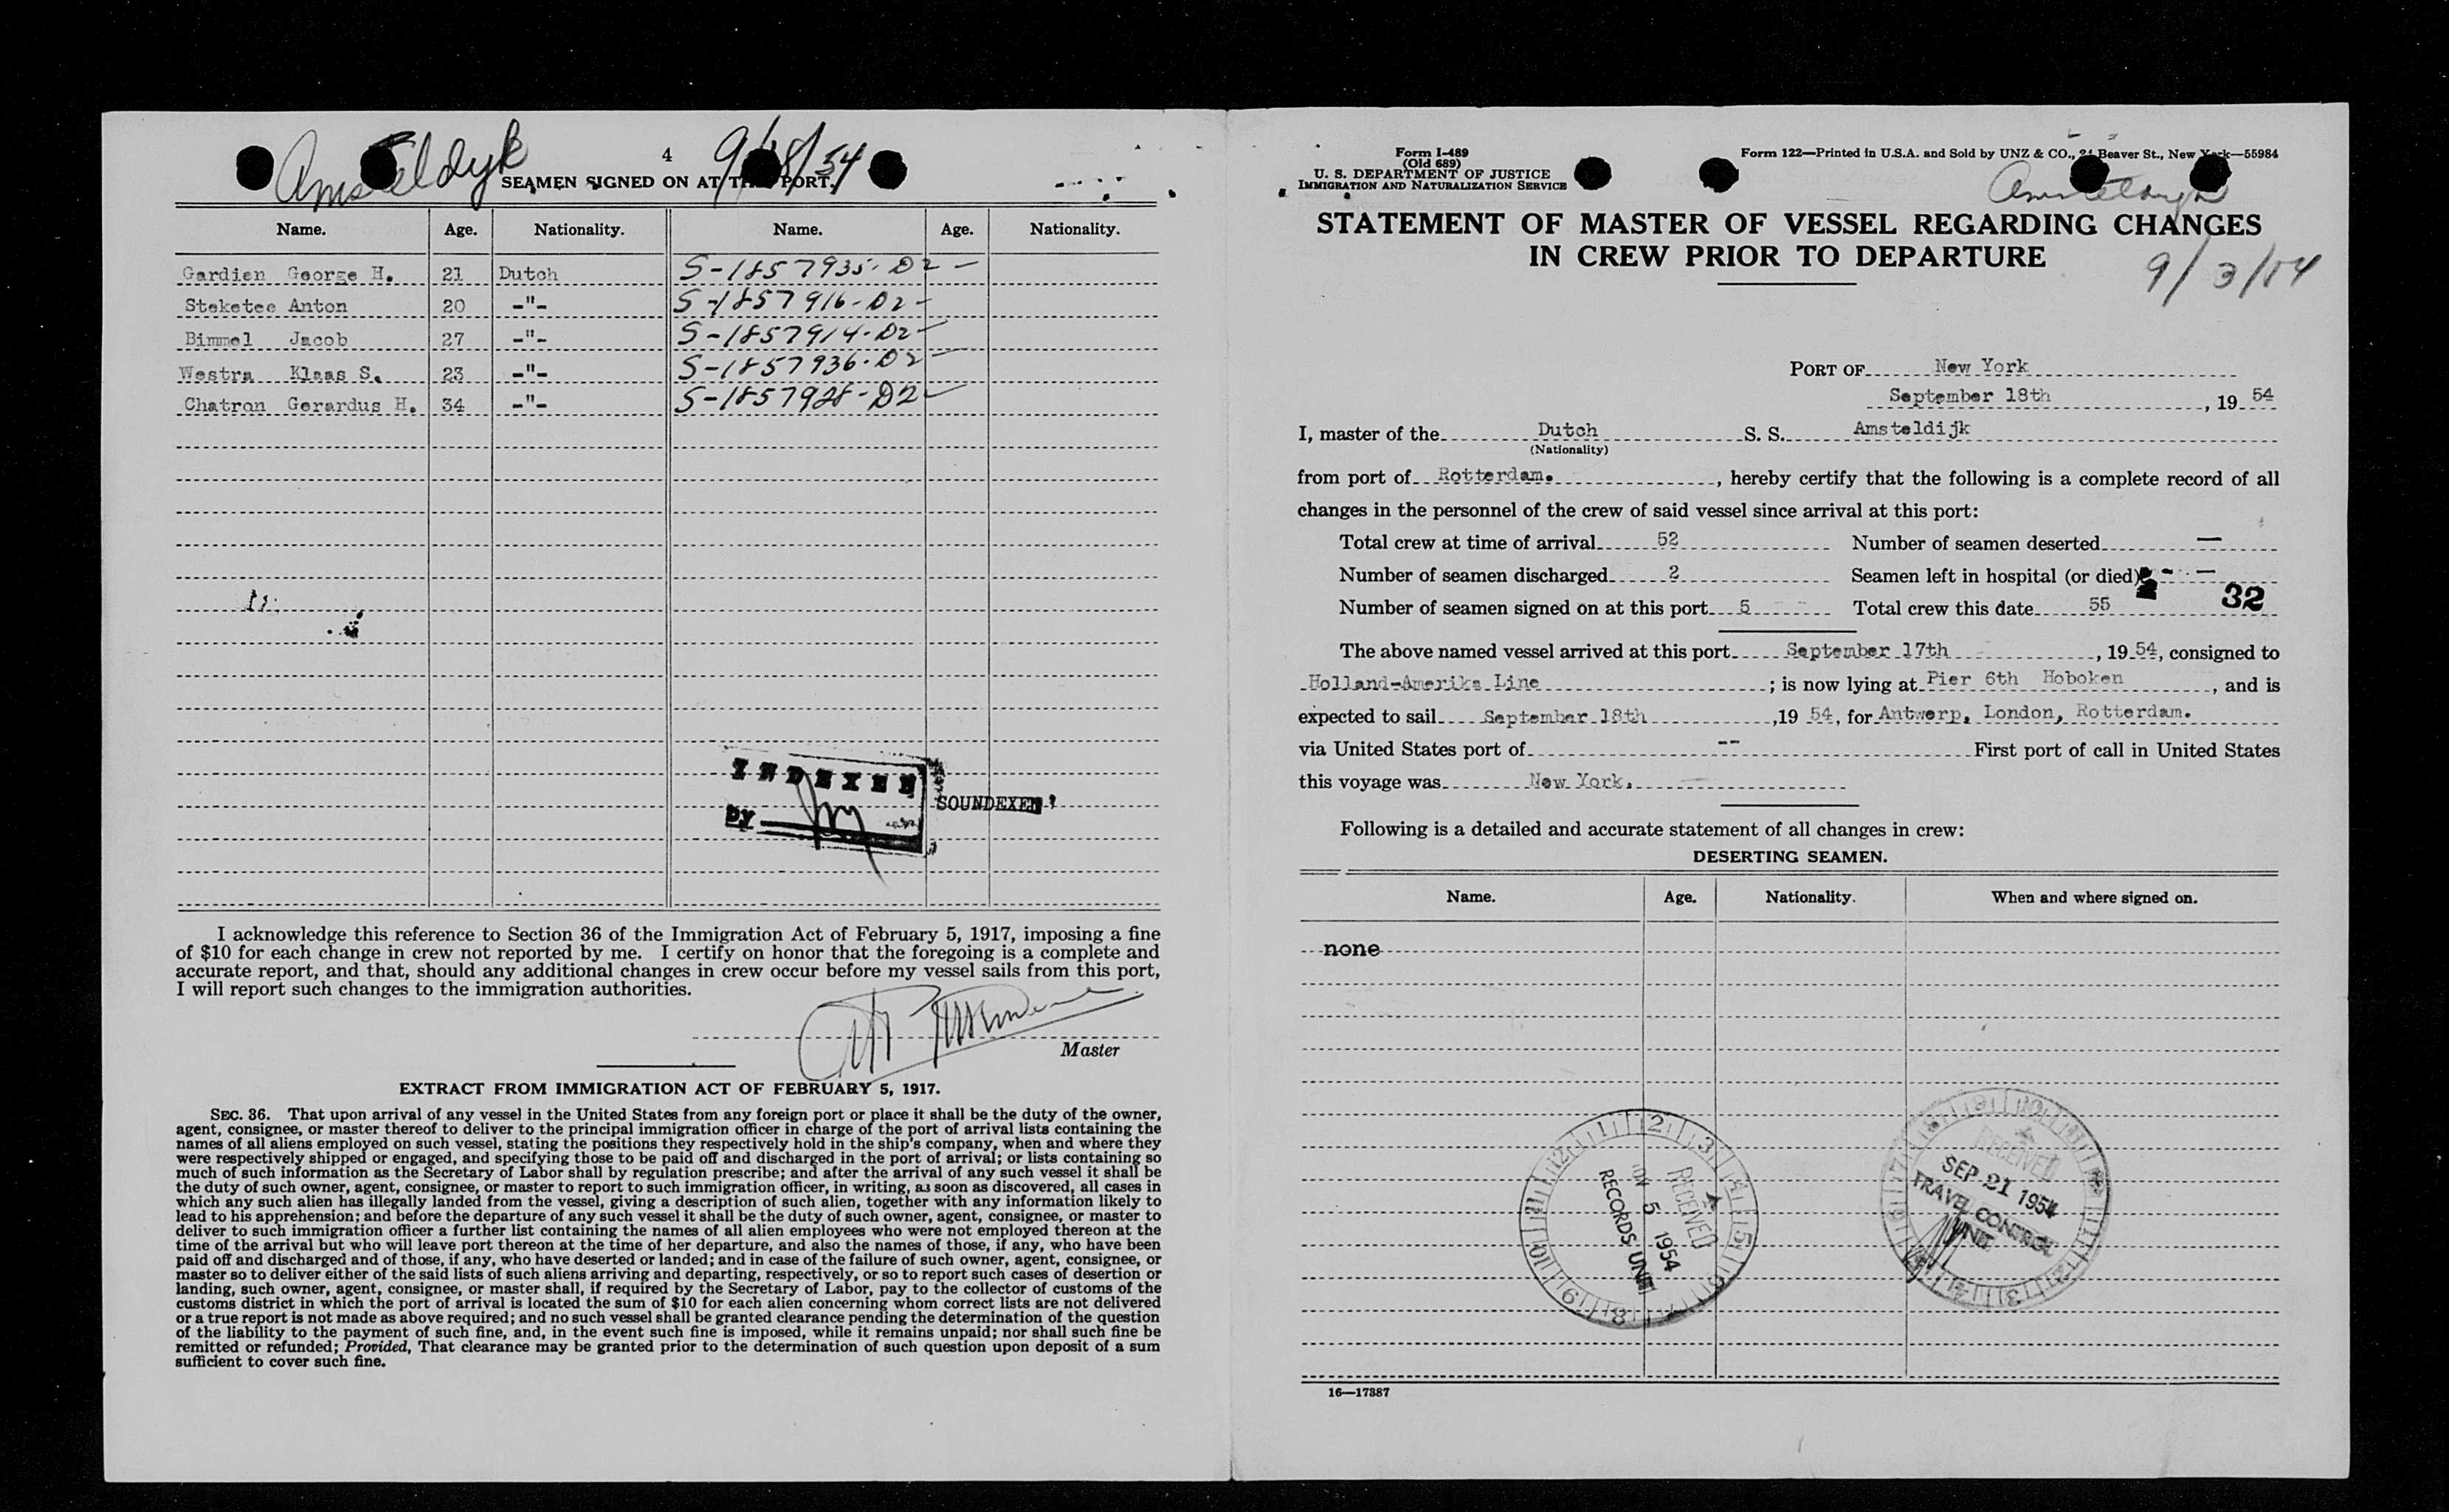 Amsteldyk
4
9/18/54
SEAMEN SIGNED ON AT THIS PORT.
Name. Age. Nationality. Name. Age. Nationality.
Gardien George H. 21 Dutch S-1857935-D2 -
Steketee Anton 20 -"- S-1857916-D2 -
Bimmel Jacob 27 -"- S-1857914-D2 -
Westra Klaas S. 23 -"- S-1857936-D2 -
Chatron Gerardus H. 34 -"- S-1857928-D2
INDEXED
BY
SOUNDEXED
I acknowledge this reference to Section 36 of the Immigration Act of February 5, 1917, imposing a fine
of $10 for each change in crew not reported by me. I certify on honor that the foregoing is a complete and
accurate report, and that, should any additional changes in crew occur before my vessel sails from this port,
I will report such changes to the immigration authorities.
Master
EXTRACT FROM IMMIGRATION ACT OF FEBRUARY 5, 1917.
SEC. 36. That upon arrival of any vessel in the United States from any foreign port or place it shall be the duty of the owner,
agent, consignee, or master thereof to deliver to the principal immigration officer in charge of the port of arrival lists containing the
names of all aliens employed on such vessel, stating the positions they respectively hold in the ship's company, when and where they
were respectively shipped or engaged, and specifying those to be paid off and discharged in the port of arrival; or lists containing so
much of such information as the Secretary of Labor shall by regulation prescribe; and after the arrival of any such vessel it shall be
the duty of such owner, agent, consignee, or master to report to such immigration officer, in writing, as soon as discovered, all cases in
which any such alien has illegally landed from the vessel, giving a description of such alien, together with any information likely to
lead to his apprehension; and before the departure of any such vessel it shall be the duty of such owner, agent, consignee, or master to
deliver to such immigration officer a further list containing the names of all alien employees who were not employed thereon at the
time of the arrival but who will leave port thereon at the time of her departure, and also the names of those, if any, who have been
paid off and discharged and of those, if any, who have deserted or landed; and in case of the failure of such owner, agent, consignee, or
master so to deliver either of the said lists of such aliens arriving and departing, respectively, or so to report such cases of desertion or
landing, such owner, agent, consignee, or master shall, if required by the Secretary of Labor, pay to the collector of customs of the
customs district in which the port of arrival is located the sum of $10 for each alien concerning whom correct lists are not delivered
or a true report is not made as above required; and no such vessel shall be granted clearance pending the determination of the question
of the liability to the payment of such fine, and, in the event such fine is imposed, while it remains unpaid; nor shall such fine be
remitted or refunded; Provided, That clearance may be granted prior to the determination of such question upon deposit of a sum
sufficient to cover such fine.
Form I-489
(Old 689)
U. S. DEPARTMENT OF JUSTICE
IMMIGRATION AND NATURALIZATION SERVICE
Form 122—Printed in U.S.A. and Sold by UNZ & CO., 24 Beaver St., New York—55984
STATEMENT OF MASTER OF VESSEL REGARDING CHANGES
IN CREW PRIOR TO DEPARTURE
PORT OF New York
September 18th, 19 54
I, master of the Dutch S. S. Amsteldijk
(Nationality)
from port of Rotterdam., hereby certify that the following is a complete record of all
changes in the personnel of the crew of said vessel since arrival at this port:
Total crew at time of arrival 52 Number of seamen deserted —
Number of seamen discharged 2 Seamen left in hospital (or died) - —
Number of seamen signed on at this port 5 Total crew this date 55 32
The above named vessel arrived at this port September 17th, 19 54, consigned to
Holland-Amerika Line; is now lying at Pier 6th Hoboken, and is
expected to sail September 18th, 19 54, for Antwerp, London, Rotterdam.
via United States port of -- First port of call in United States
this voyage was New York.
Following is a detailed and accurate statement of all changes in crew:
DESERTING SEAMEN.
Name. Age. Nationality. When and where signed on.
none
RECEIVED
5 1954
RECORDS UNIT
RECEIVED
SEP 21 1954
TRAVEL CONTROL
UNIT
16—17387